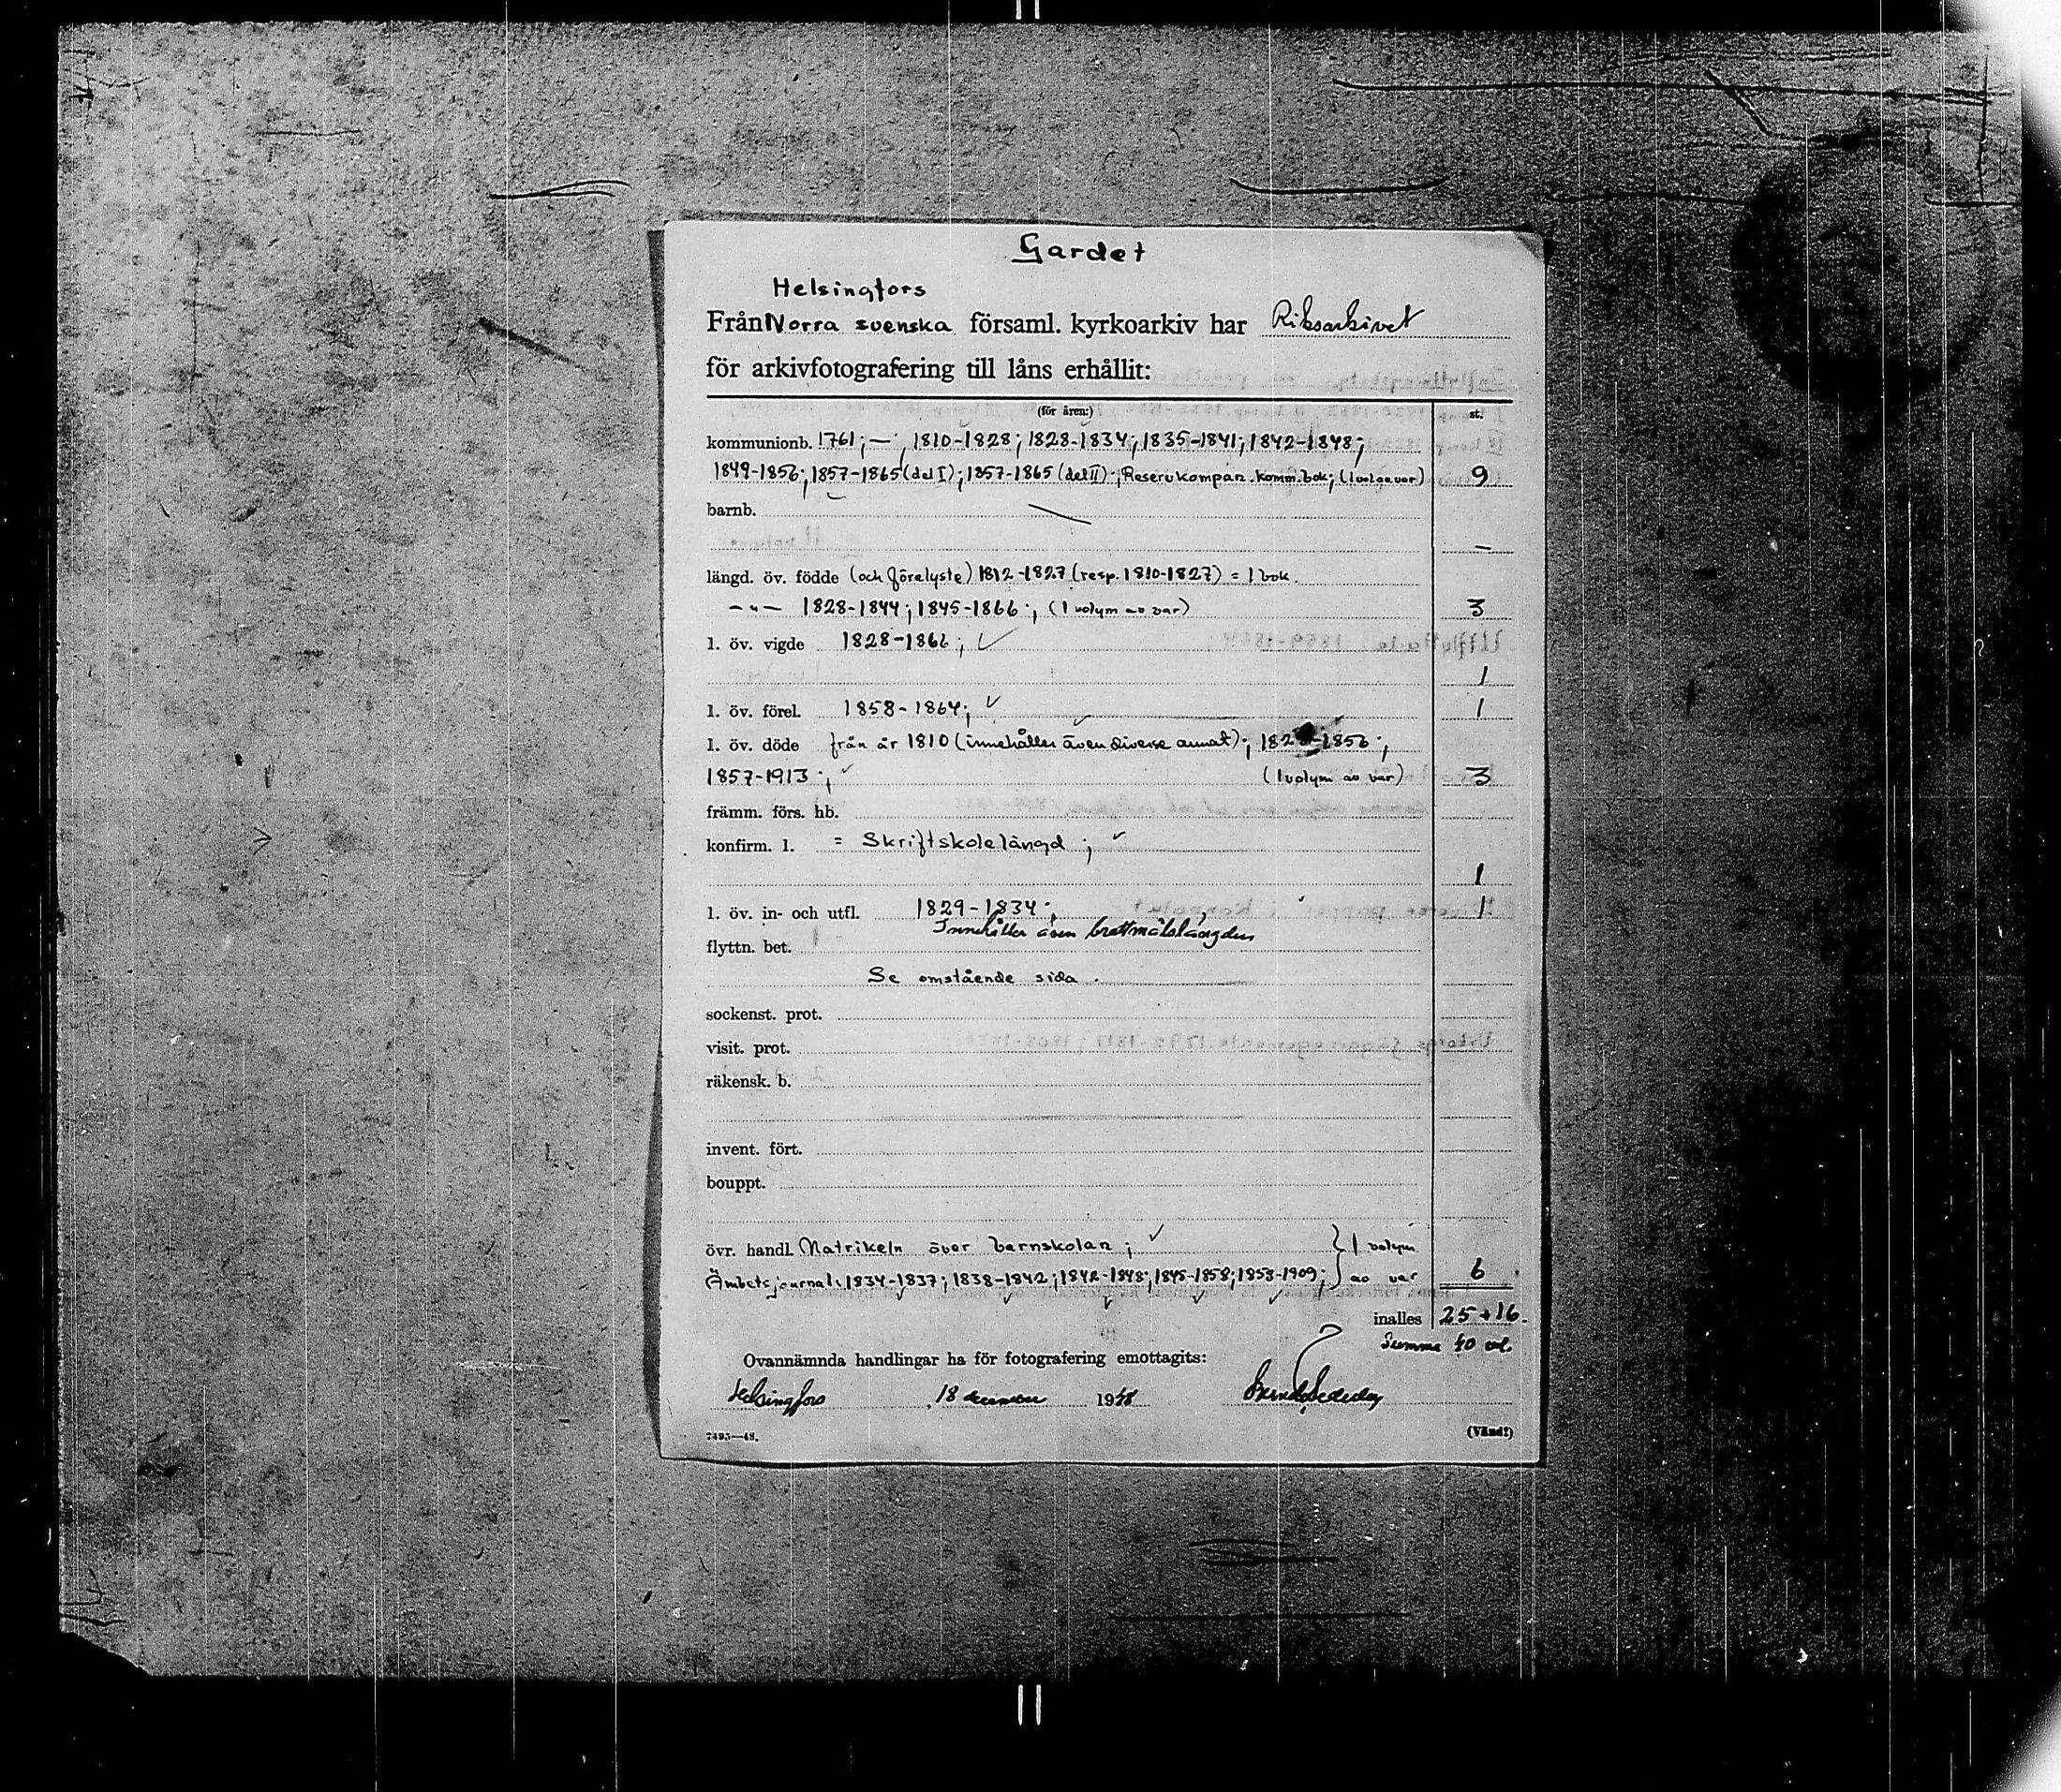 Gardet
Helsingfors
Från Norra svenska församl. kyrkoarkiv har Riksarkivet
för arkivfotografering till låns erhållit:
(för åren:) st.
kommunionb. 1761; — ; 1810-1828; 1828-1834; 1835-1841; 1842-1848;
1849-1856; 1857-1865 (del I); 1857-1865 (del II); Reservkompan. komm.bok; (1 vol av var) 9
barnb.
—
längd. öv. födde (och förelyste) 1812-1827 (resp. 1810-1827) = 1 bok.
-"- 1828-1844; 1845-1866; (1 volym av var) 3
l. öv. vigde 1828-1866;
1
l. öv. förel. 1858-1864; 1
l. öv. döde från år 1810 (innehåller även diverse annat); 1828-1856;
1857-1913; (1 volym av var) 3
främm. förs. hb.
konfirm. l. = Skriftskolelängd;
1
l. öv. in- och utfl. 1829-1834; 1
Innehåller även brottmålslängden
flyttn. bet.
Se omstående sida.
sockenst. prot.
visit. prot.
räkensk. b.
invent. fört.
bouppt.
övr. handl. Matrikeln över barnskolan; } 1 volym
Ämbetsjournal: 1834-1837; 1838-1842; 1842-1848; 1845-1858; 1853-1909; av var 6
inalles 25 + 16.
Summa 40 vol.
Ovannämnda handlingar ha för fotografering emottagits:
Helsingfors, 18 december 1948
7493—48. (Vänd!)